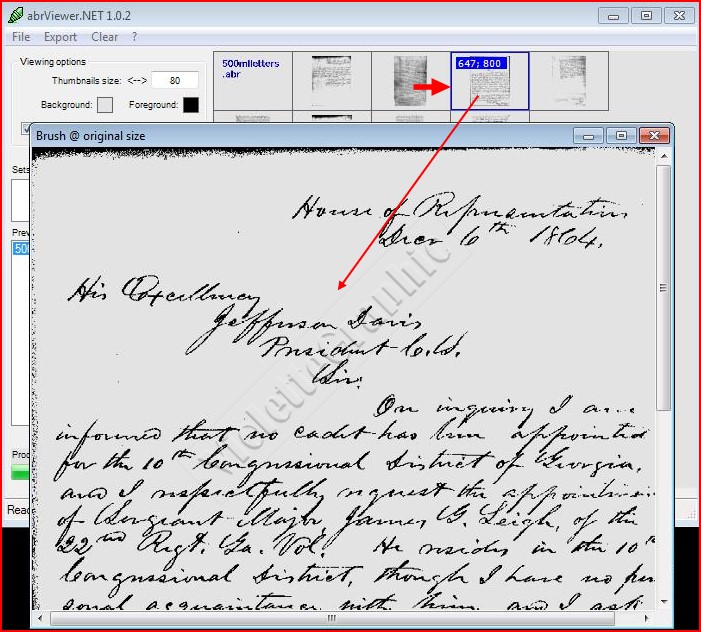 abrViewer.NET 1.0.2
File Export Clear ?
Viewing options
Thumbnails size: <--> 80
Background: Foreground:
500mlletters
.abr
647; 800
Brush @ original size
Sets
Prev
50
Proc
Read
House of Representatives
Decr 6th 1864.
His Excellency
Jefferson Davis
President C.S.
Sir:
On inquiry I am
informed that no cadet has been appointed
for the 10th Congressional District of Georgia,
and I respectfully request the appointmen
of Sergeant Major, James G. Leigh, of the
22nd Regt. Ga. Vol. He resides in the 10th
Congressional District, though I have no per
sonal acquaintance with him, and I ask
VioletteGraphic